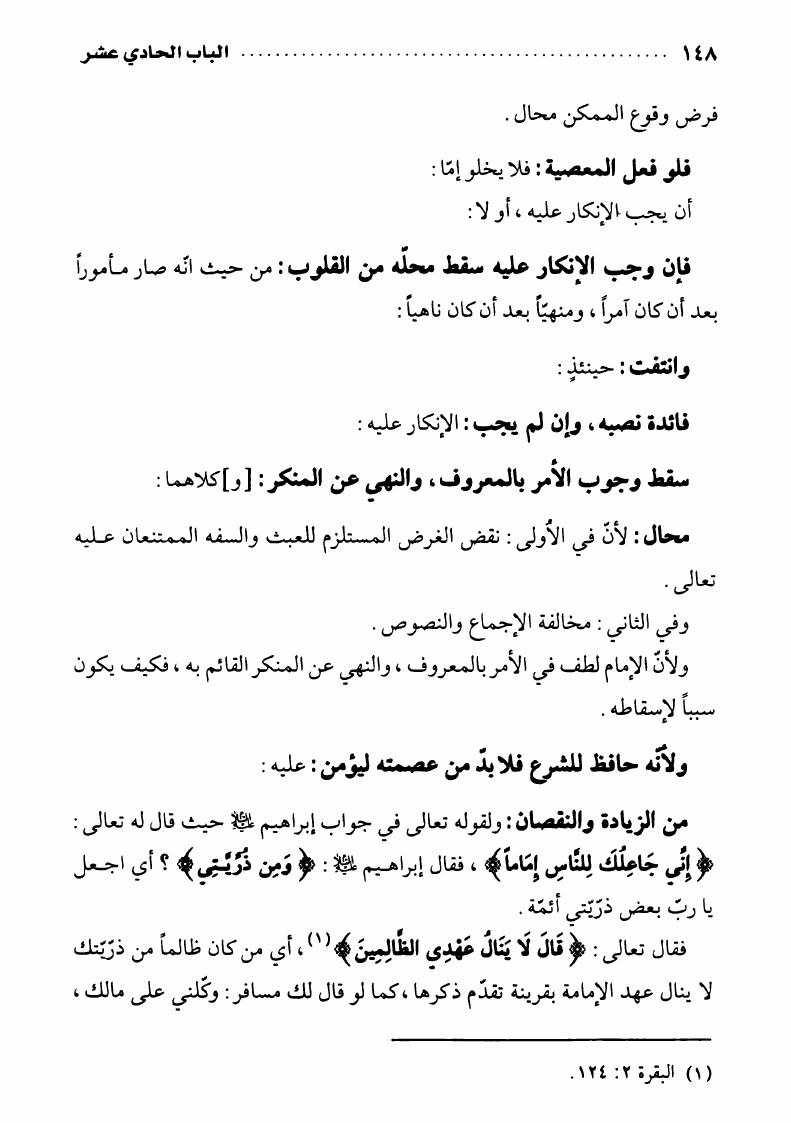 ١٤٨ ................................................ الباب الحادي عشر
فرض وقوع الممكن محال .
فلو فعل المعصية : فلا يخلو إمّا :
أن يجب الإنكار عليه ، أو لا :
فإن وجب الإنكار عليه سقط محلّه من القلوب : من حيث انّه صار مأموراً
بعد أن كان آمراً ، ومنهيّاً بعد أن كان ناهياً :
وانتفت : حينئذٍ :
فائدة نصبه ، وإن لم يجب : الإنكار عليه :
سقط وجوب الأمر بالمعروف ، والنهي عن المنكر : [و]كلاهما :
محال : لأنّ في الأُولى : نقض الغرض المستلزم للعبث والسفه الممتنعان عليه
تعالى .
وفي الثاني : مخالفة الإجماع والنصوص .
ولأنّ الإمام لطف في الأمر بالمعروف ، والنهي عن المنكر القائم به ، فكيف يكون
سبباً لإسقاطه .
ولأنّه حافظ للشرع فلا بدّ من عصمته ليؤمن : عليه :
من الزيادة والنقصان : ولقوله تعالى في جواب إبراهيم عليه السلام حيث قال له تعالى :
﴿ إِنِّي جَاعِلُكَ لِلنَّاسِ إِمَاماً ﴾ ، فقال إبراهيم عليه السلام : ﴿ وَمِن ذُرِّيَّتِي ﴾ ؟ أي اجعل
يا ربّ بعض ذرّيّتي أئمّة .
فقال تعالى : ﴿ قَالَ لَا يَنَالُ عَهْدِي الظَّالِمِينَ ﴾(١) ، أي من كان ظالماً من ذرّيّتك
لا ينال عهد الإمامة بقرينة تقدّم ذكرها ، كما لو قال لك مسافر : وكّلني على مالك ،
(١) البقرة ٢ : ١٢٤ .